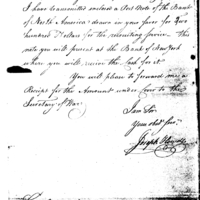 I have transmitted enclosed a Post Note of the Bank
of North America drawn in your favor for two
hundred Dollars for the recruiting service. This
note you will present at the Bank of New York
where you will receive the Cash for it
You will please to forward me a
Receipt for the Amount under Cover to the
Secretary of War.
I am Sir
Your obdt Servt
Joseph Howell